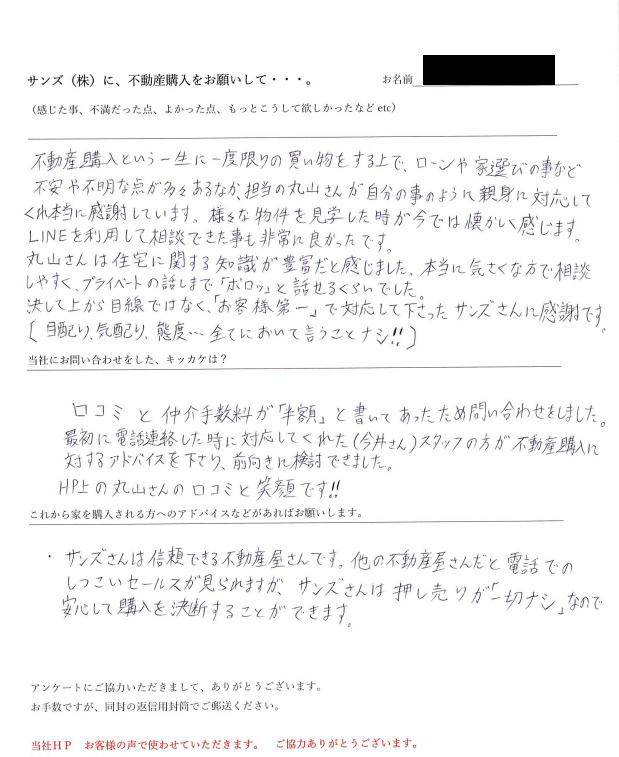 サンズ（株）に、不動産購入をお願いして・・・。 お名前
（感じた事、不満だった点、よかった点、もっとこうして欲しかったなど etc）
不動産購入という一生に一度限りの買い物をする上で、ローンや家選びの事など
不安や不明な点が多々あるなか、担当の丸山さんが自分の事のように親身に対応して
くれ本当に感謝しています。様々な物件を見学した時が今では懐かしく感じます。
LINEを利用して相談できた事も非常に良かったです。
丸山さんは住宅に関する知識が豊富だと感じました。本当に気さくな方で相談
しやすく、プライベートの話しまで「ポロッ」と話せるくらいでした。
決して上から目線ではなく、「お客様第一」で対応して下さったサンズさんに感謝です。
〔目配り、気配り、態度… 全てにおいて言うことナシ!!〕
当社にお問い合わせをした、キッカケは？
口コミと仲介手数料が「半額」と書いてあったため問い合わせをしました。
最初に電話連絡した時に対応してくれた（今井さん）スタッフの方が不動産購入に
対するアドバイスを下さり、前向きに検討できました。
HP上の丸山さんの口コミと笑顔です!!
これから家を購入される方へのアドバイスなどがあればお願いします。
・サンズさんは信頼できる不動産屋さんです。他の不動産屋さんだと電話での
しつこいセールスが見られますが、サンズさんは押し売りが「一切ナシ」なので
安心して購入を決断することができます。
アンケートにご協力いただきまして、ありがとうございます。
お手数ですが、同封の返信用封筒でご郵送ください。
当社ＨＰ　お客様の声で使わせていただきます。　ご協力ありがとうございます。